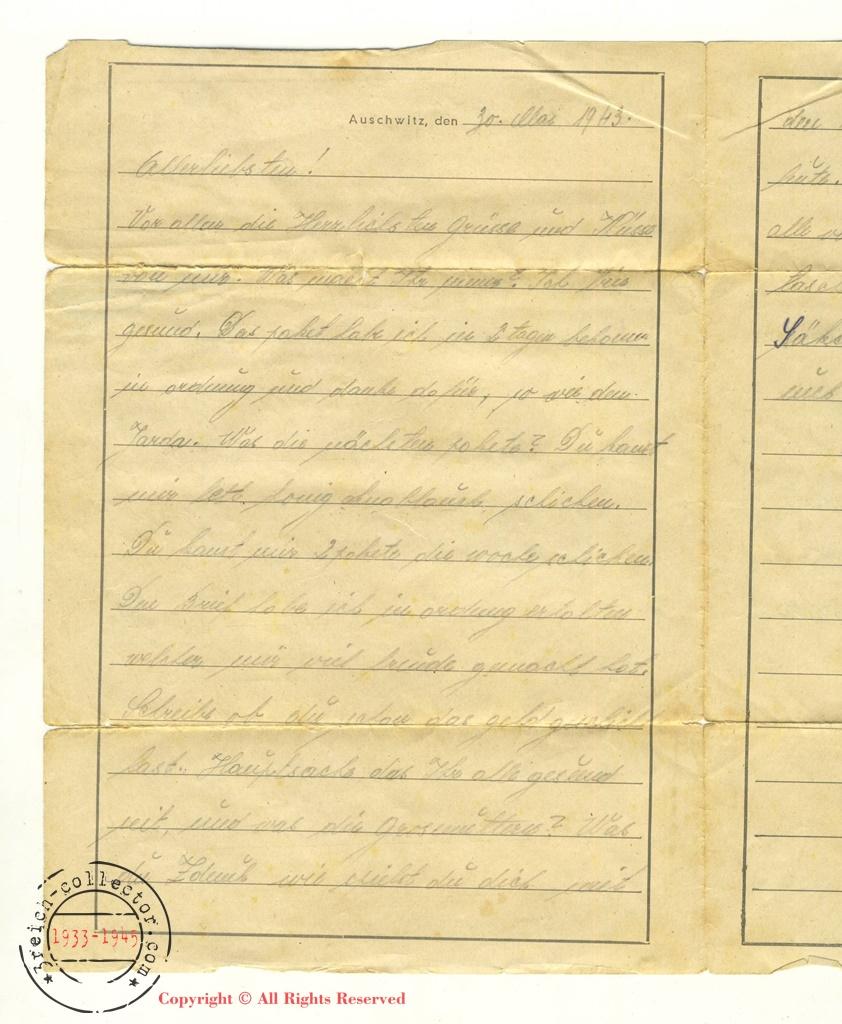 Auschwitz, den 30. Mai 1943.
Allerliebsten!
Vor allem die Herrlichsten Grüsse und Küsse
von mir. Was macht Ihr immer? Ich bin
gesund. Das paket habe ich in 2 tagen bekomm-
in ordnung und danke dafür, so wie dem
Jarda. Was die nächsten pakete? Du kanst
mir honig schicken.
Du kanst mir 2 pakete die woche schicken.
Den Brief habe ich in ordnung erhalten
welcher mir viel freude gemacht hat.
Schreibe ob du schon das geld geschikt
hast. Hauptsache das Ihr alle gesund
seit, und was die Grosmuttern? Was
du Zdenk wie siehst du dich mit
den
gute.
alle
nach
3reich-collector.com
1933-1945
Copyright © All Rights Reserved